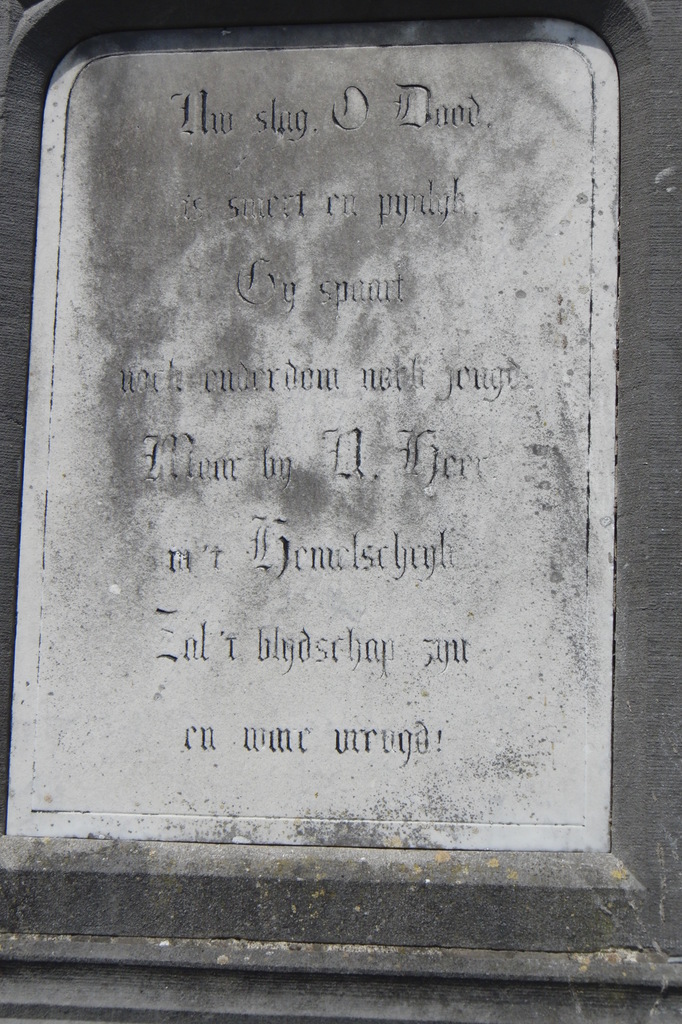 Uw slag, O Dood,
is smert en pynlyk.
Gy spaart
noch ouderdom noch jeugd.
Maar by U, Heer
in 't Hemelscheryk
Zal 't blydschap zyn
en ware vreugd!